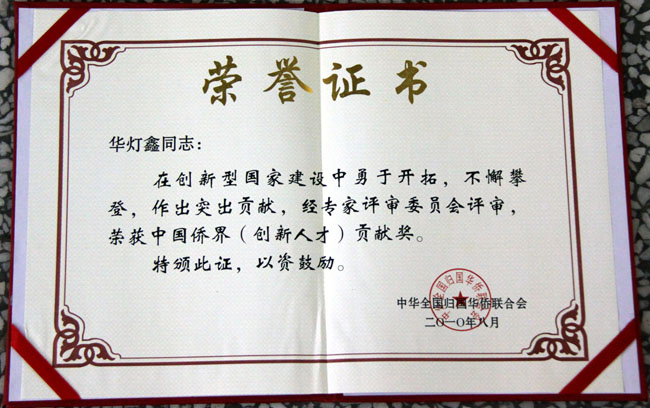 荣誉证书
华灯鑫同志：
在创新型国家建设中勇于开拓，不懈攀
登，作出突出贡献，经专家评审委员会评审，
荣获中国侨界（创新人才）贡献奖。
特颁此证，以资鼓励。
中华全国归国华侨联合会
二〇一〇年八月
中华全国归国华侨联合会